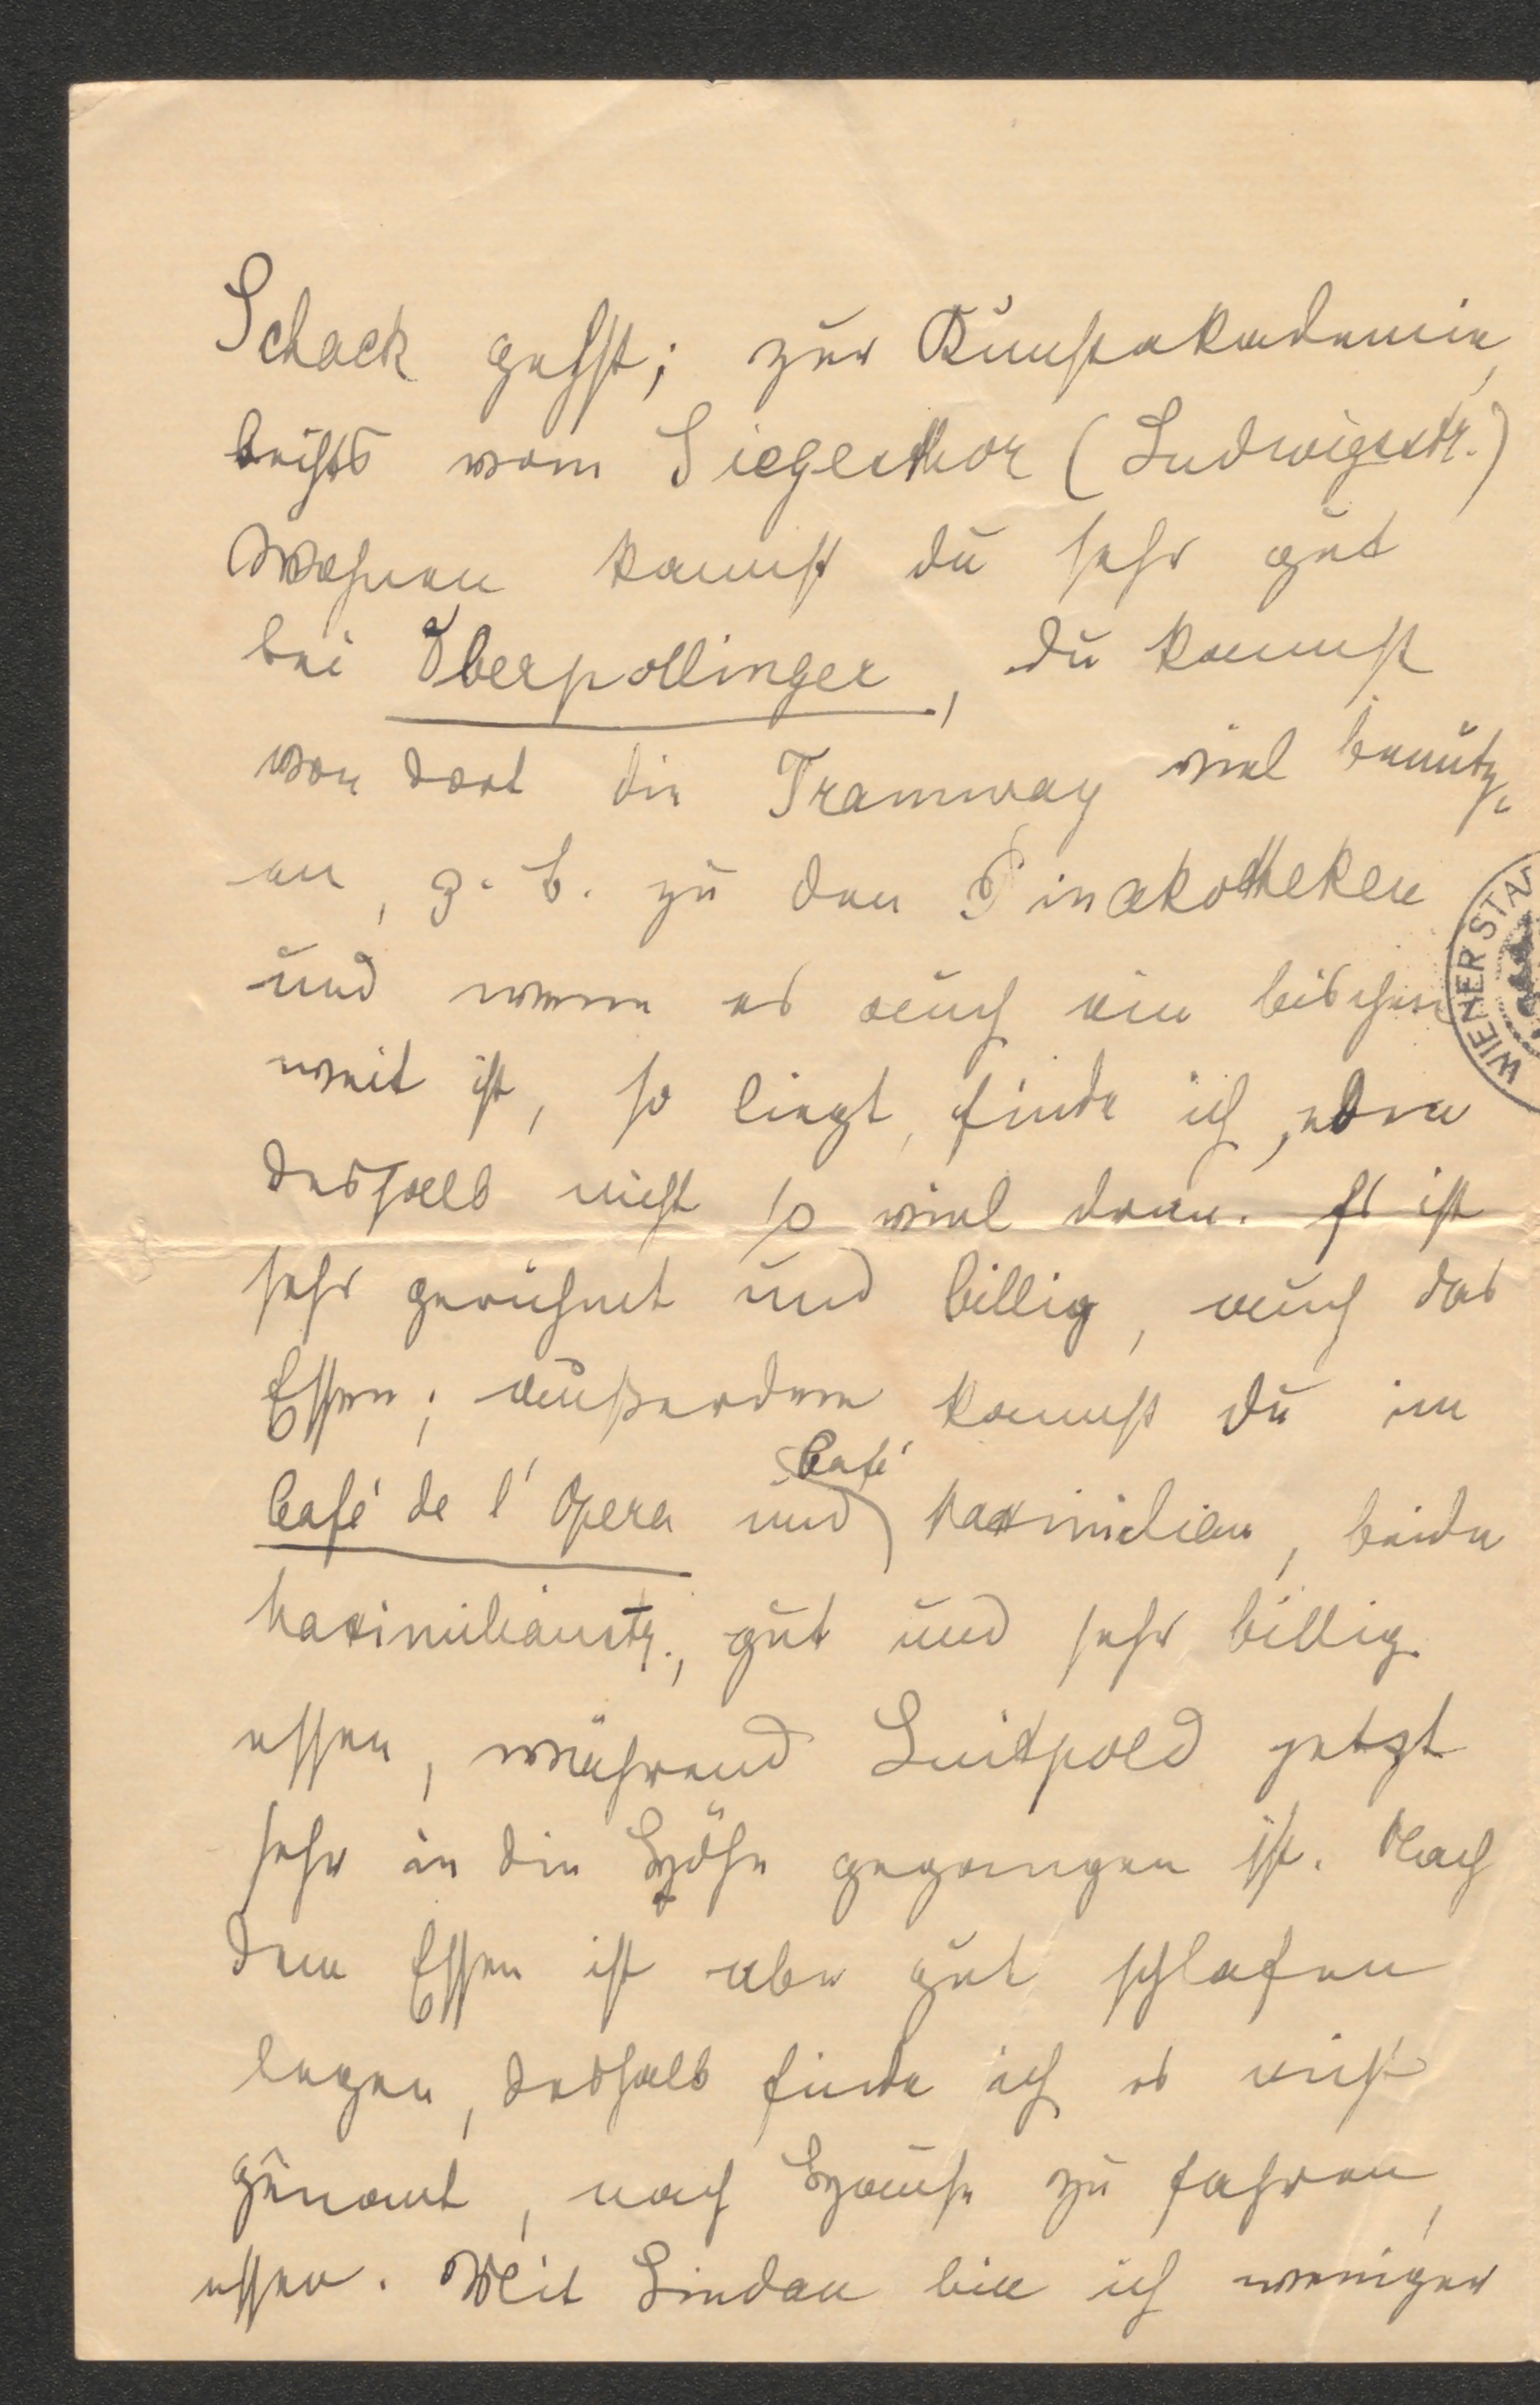 Schack gehst; zur Kunstakademie,
rechts vom Siegesthor (Ludwigsstr.)
Wohnen kannst du sehr gut
bei Oberpollinger, du kannst
von dort die Tramway viel benütz-
en, z. b. zu den Pinakotheken
und wenn es auch ein bischen
weit ist, so liegt, finde ich, eben
deshalb nicht so viel dran. Es ist
sehr geeignet und billig, auch das
Essen; außerdem kannst du im
Café de l'Opera und Café Maximilian, beide
Maximilianstr., gut und sehr billig
essen, während Luitpold jetzt
sehr in die Höhe gegangen ist. Nach
dem Essen ist aber gut schlafen
legen, deshalb finde ich es nicht
genant, nach Hause zu fahren,
essen. Mit Lindau bin ich weniger
WIENER STA